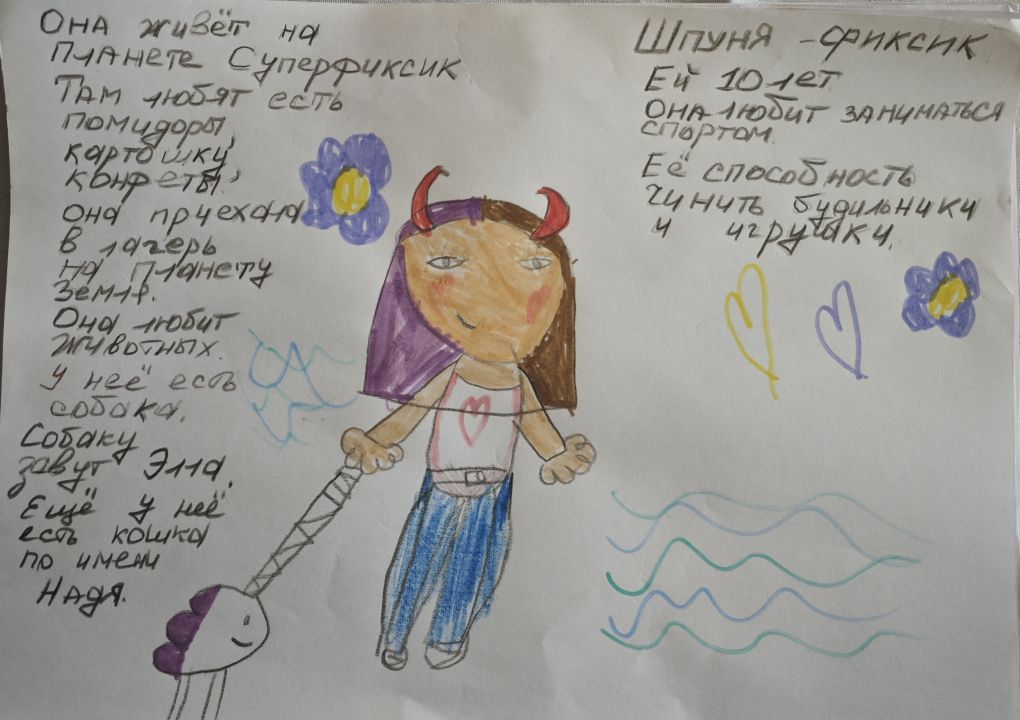 Она живёт на
планете Суперфиксик
Там любят есть
помидоры,
картошку,
конфеты.
она приехала
в лагерь
на планету
Земля.
Она любит
животных.
У неё есть
собака.
Собаку
зовут Элла.
Ещё у неё
есть кошка
по имени
Надя.
Шпуня - фиксик
Ей 10 лет
она любит заниматься
спортом.
Её способность
чинить будильники
и игрушки.